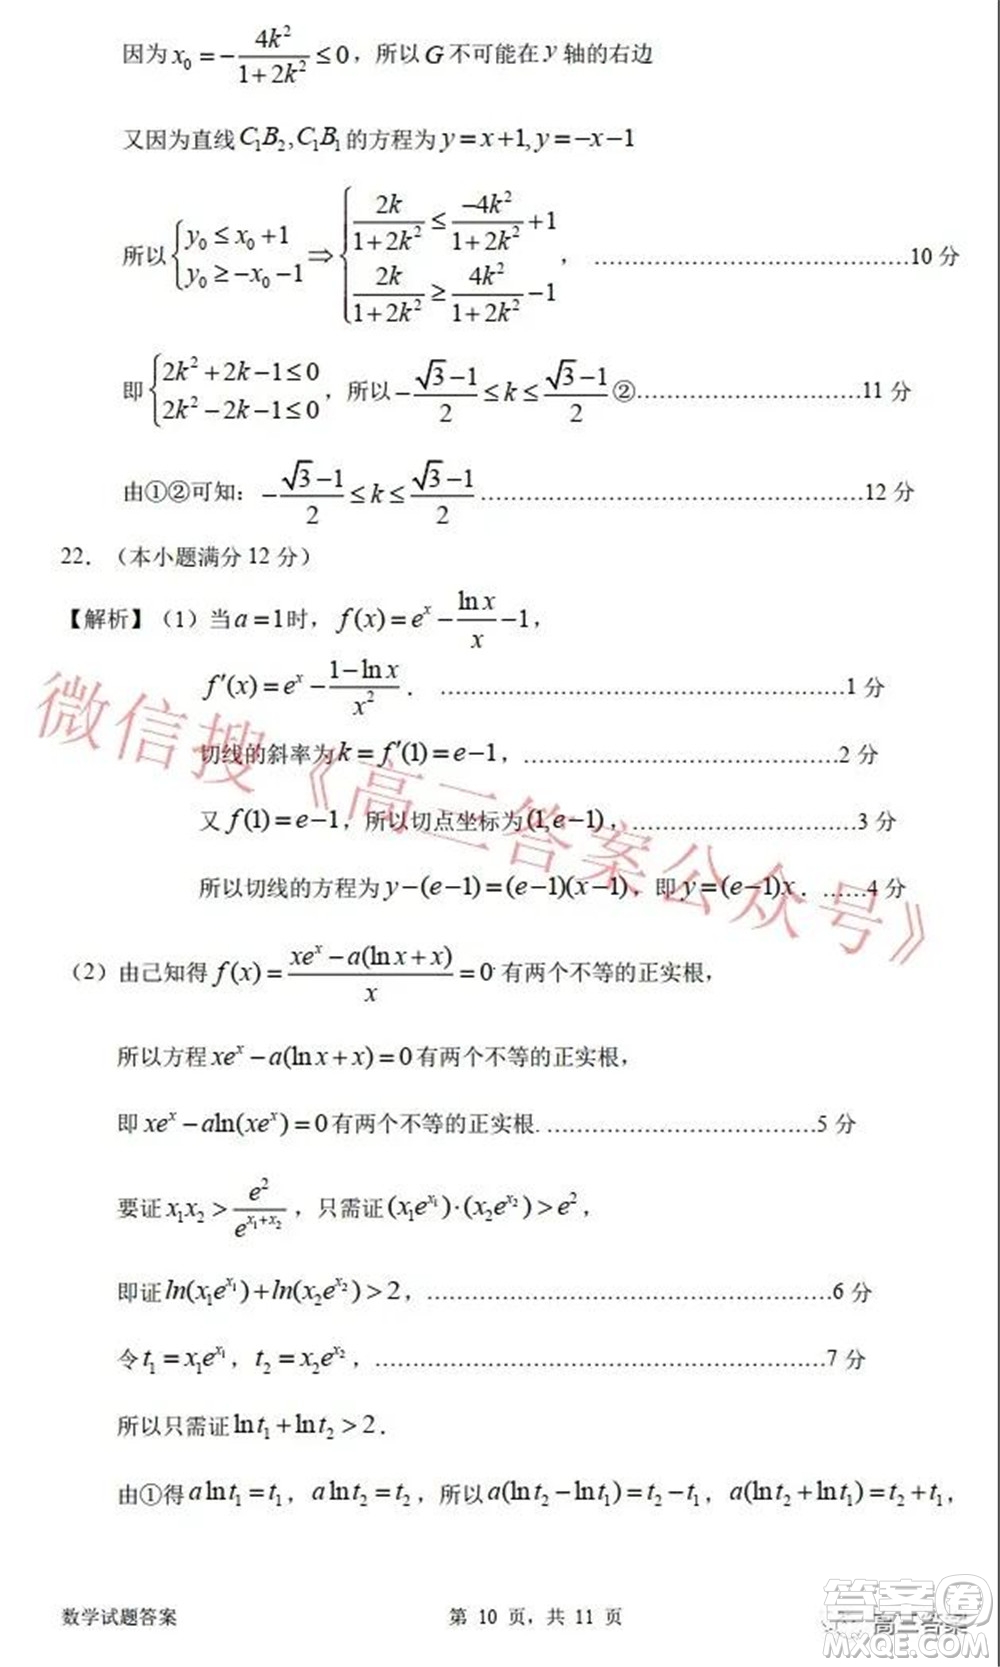 因为 x₀ = -4k²/(1+2k²) ≤ 0，所以 G 不可能在 y 轴的右边
又因为直线 C₁B₂, C₁B₁ 的方程为 y = x+1, y = -x-1
所以 { y₀ ≤ x₀+1 ; y₀ ≥ -x₀-1 ⇒ { 2k/(1+2k²) ≤ -4k²/(1+2k²) +1 ; 2k/(1+2k²) ≥ 4k²/(1+2k²) -1 ，……………………10 分
即 { 2k²+2k-1≤0 ; 2k²-2k-1≤0 ，所以 -(√3-1)/2 ≤ k ≤ (√3-1)/2 ②……………………11 分
由①②可知：-(√3-1)/2 ≤ k ≤ (√3-1)/2 ……………………12 分
22．（本小题满分 12 分）
【解析】（1）当 a=1 时，f(x) = eˣ - lnx/x - 1，
f′(x) = eˣ - (1-lnx)/x²．……………………1 分
切线的斜率为 k = f′(1) = e-1，……………………2 分
又 f(1) = e-1，所以切点坐标为 (1,e-1)，……………………3 分
所以切线的方程为 y-(e-1) = (e-1)(x-1)，即 y = (e-1)x．……4 分
（2）由己知得 f(x) = (xeˣ - a(lnx+x))/x = 0 有两个不等的正实根，
所以方程 xeˣ - a(lnx+x) = 0 有两个不等的正实根，
即 xeˣ - aln(xeˣ) = 0 有两个不等的正实根.……………………5 分
要证 x₁x₂ > e²/e^(x₁+x₂)，只需证 (x₁e^(x₁))·(x₂e^(x₂)) > e²，
即证 ln(x₁e^(x₁)) + ln(x₂e^(x₂)) > 2，……………………6 分
令 t₁ = x₁e^(x₁)，t₂ = x₂e^(x₂)，……………………7 分
所以只需证 lnt₁ + lnt₂ > 2．
由①得 alnt₁ = t₁，alnt₂ = t₂，所以 a(lnt₂ - lnt₁) = t₂ - t₁，a(lnt₂ + lnt₁) = t₂ + t₁，
数学试题答案 第 10 页，共 11 页
微信搜《高三答案公众号》
高三答案
答案圈
MXQE.COM